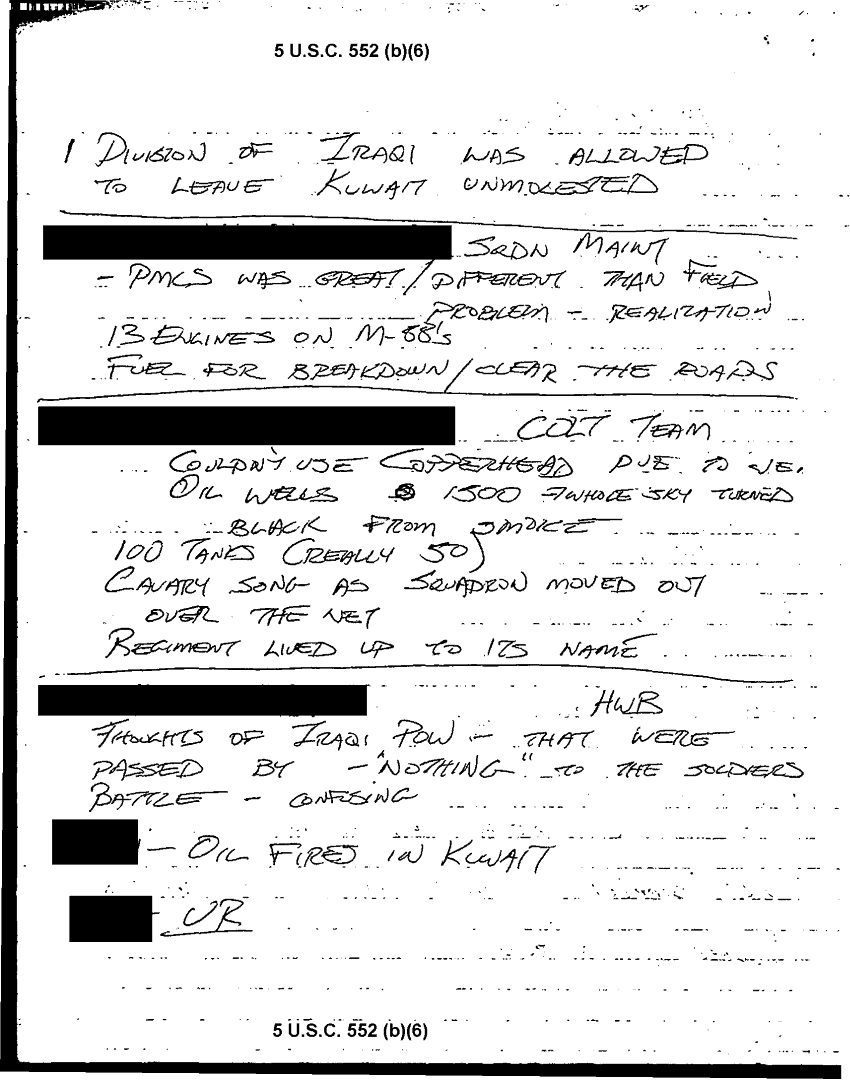 5 U.S.C. 552 (b)(6)
1 DIVISION OF IRAQI WAS ALLOWED
TO LEAVE KUWAIT UNMOLESTED
SQDN MAINT
- PMCS WAS GREAT / DIFFERENT THAN FIELD
PROBLEM - REALIZATION
13 ENGINES ON M-88's
FUEL FOR BREAKDOWN / CLEAR THE ROADS
COLT TEAM
COULDN'T USE COPPERHEAD DUE TO
OIL WELLS 1500 WHOLE SKY TURNED
BLACK FROM SMOKE
100 TANKS (REALLY 50)
CAVARY SONG AS SQUADRON MOVED OUT
OVER THE NET
REGIMENT LIVED UP TO ITS NAME
HWB
THOUGHTS OF IRAQI POW - THAT WERE
PASSED BY - "NOTHING" TO THE SOLDIERS
BATTLE - CONFUSING
- OIL FIRES IN KUWAIT
- UR
5 U.S.C. 552 (b)(6)